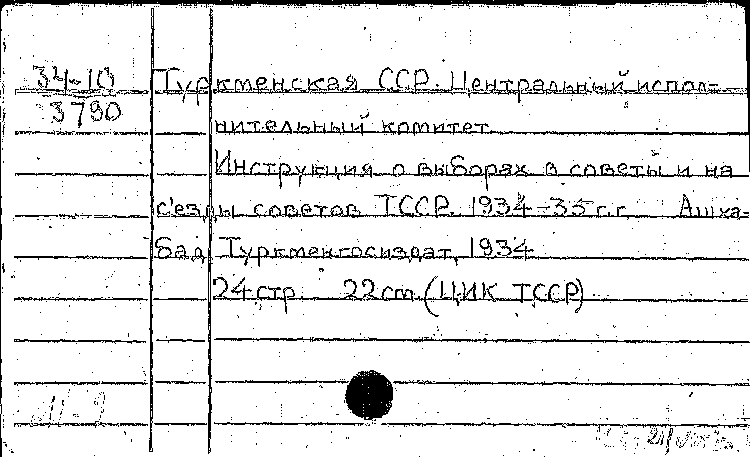 34-10 Туркменская ССР. Центральный испол-
3790
нительный комитет.
Инструкция о выборах в советы и на
с'езды советов ТССР. 1934-35 г.г. Ашха-
бад, Туркменгосиздат, 1934
24 стр. 22 см. (ЦИК ТССР)